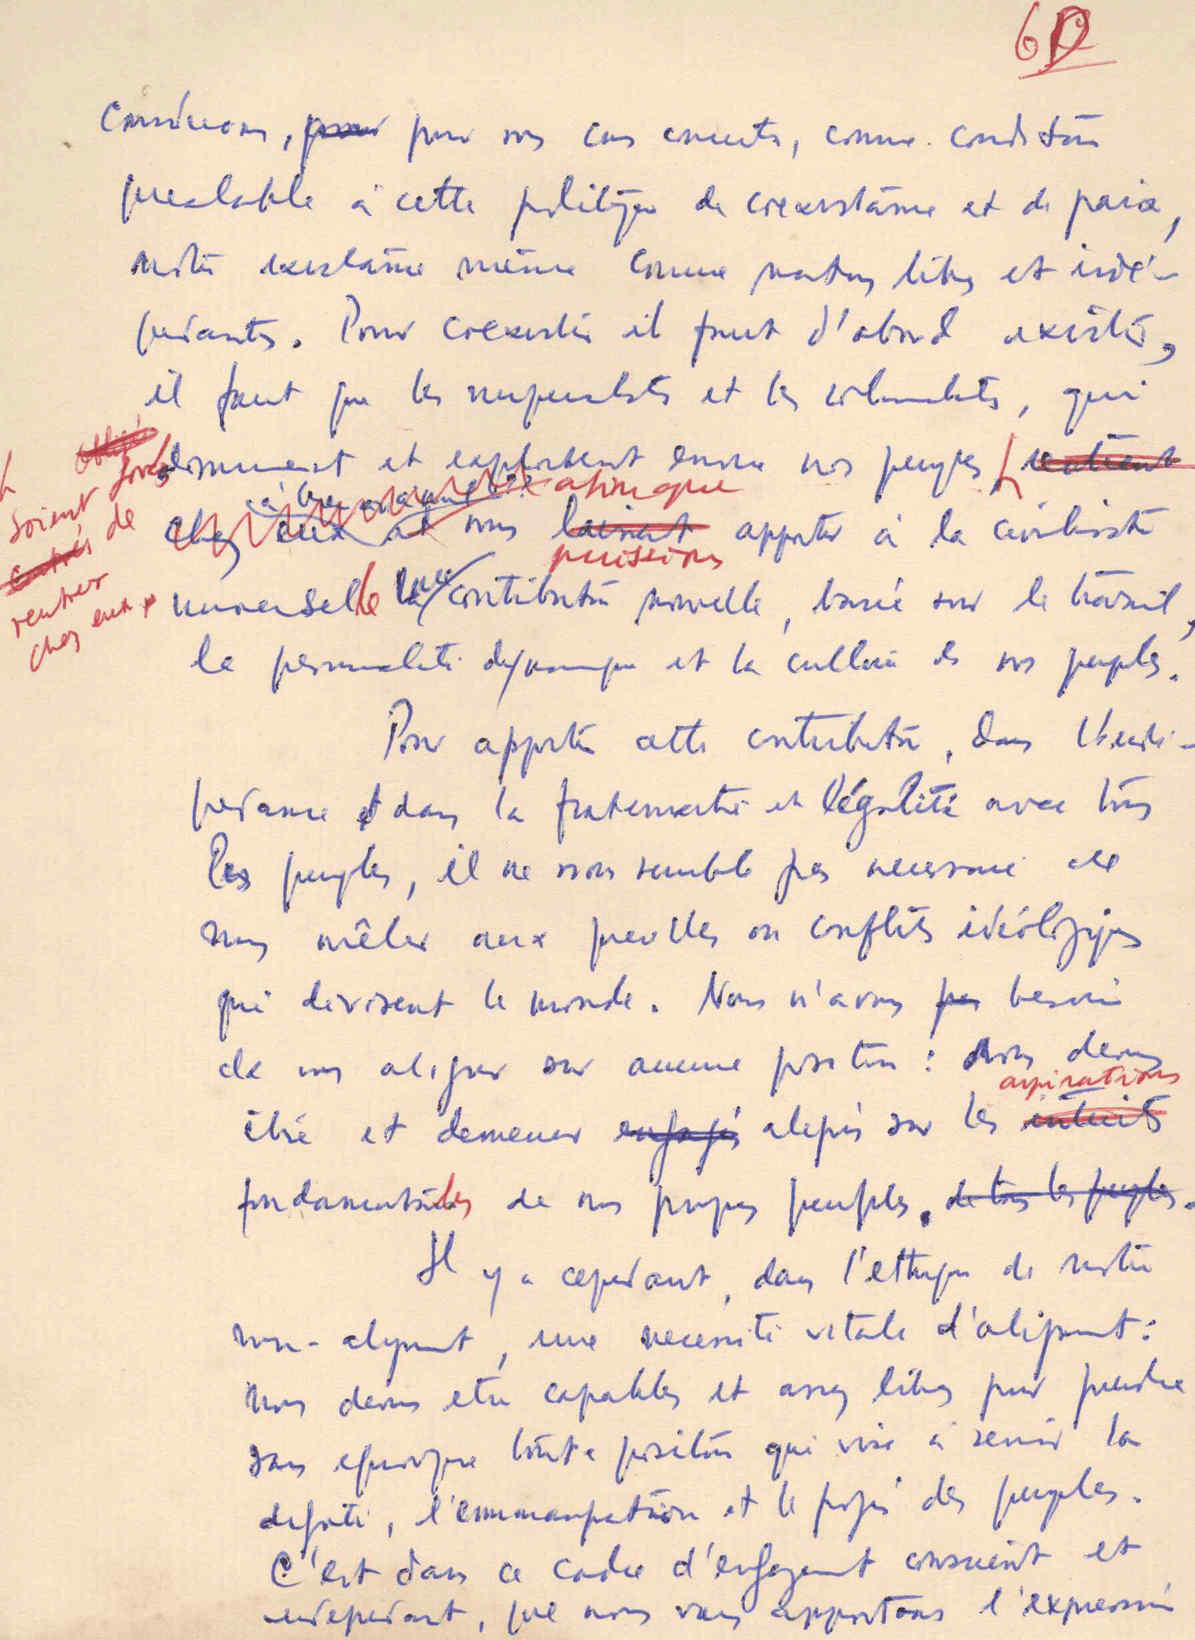 6
considérons, pour pour nos cas concrets, comme condition
préalable à cette politique de coexistence et de paix,
notre existence même comme nations libres et indé-
pendantes. Pour coexister il faut d'abord exister,
il faut que les impérialistes et les colonialistes, qui
dominent et exploitent encore nos peuples
obligés
soient forcés
de
rentrer
chez eux
afin que
chez eux et nous laissent apporter à la civilisation
puissions
universelle une contribution nouvelle, basée sur le travail,
la personnalité dynamique et la culture de nos peuples.
Pour apporter cette contribution, dans l'indé-
pendance et dans la fraternité et l'égalité avec tous
les peuples, il ne nous semble pas nécessaire de
nous mêler aux querelles ou conflits idéologiques
qui divisent le monde. Nous n'avons pas besoin
de nous aligner sur aucune position : nous devons
aspirations
être et demeurer engagés alignés sur les intérêts
fondamentales de nos propres peuples. de tous les peuples.
Il y a cependant, dans l'éthique de notre
non-alignement, une nécessité vitale d'alignement :
nous devons être capables et assez libres pour prendre
sans équivoque toute position qui vise à servir la
dignité, l'émmancipation et le progrès des peuples.
C'est dans ce cadre d'engagement conscient et
indépendant, que nous vous apportons l'expression